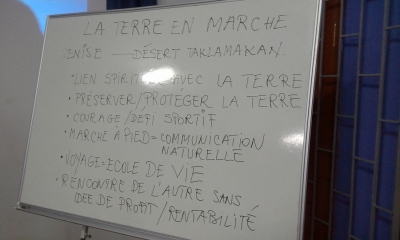 LA TERRE EN MARCHE
DÉSERT TAKLAMAKAN
• LIEN SPIRITUEL AVEC LA TERRE
• PRÉSERVER/PROTÉGER LA TERRE
• COURAGE/DÉFI SPORTIF
• MARCHE À PIED = COMMUNICATION
NATURELLE
• VOYAGE = ECOLE DE VIE
• RENCONTRE DE L'AUTRE SANS
IDEE DE PROFIT/RENTABILITÉ